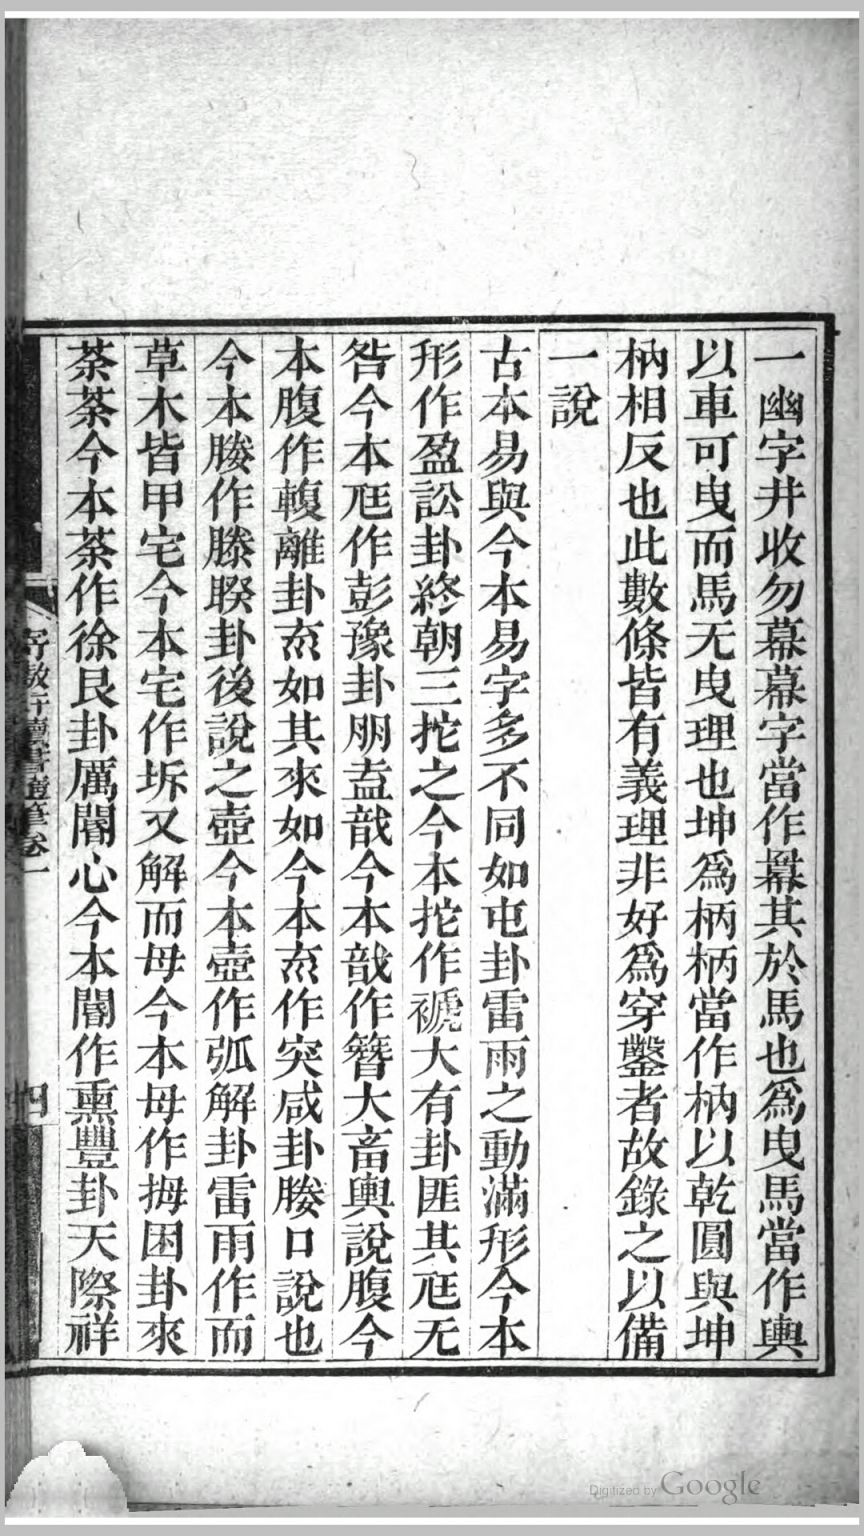 一幽字井收勿幕幕字當作羃其於馬也爲曳馬當作輿
以車可曳而馬无曳理也坤爲柄柄當作枘以乾圓與坤
枘相反也此數條皆有義理非好爲穿鑿者故錄之以備
一說
古本易與今本易字多不同如屯卦雷雨之動滿形今本
形作盈訟卦終朝三拕之今本拕作褫大有卦匪其尫无
咎今本尫作彭豫卦朋盍戠今本戠作簪大畜輿說腹今
本腹作輹離卦𠫓如其來如今本𠫓作突咸卦媵口說也
今本媵作滕睽卦後說之壺今本壺作弧解卦雷雨作而
草木皆甲宅今本宅作坼又解而母今本母作拇困卦來
荼荼今本荼作徐艮卦厲閽心今本閽作熏豐卦天際祥
讀書隨筆卷一
四
Digitized by Google